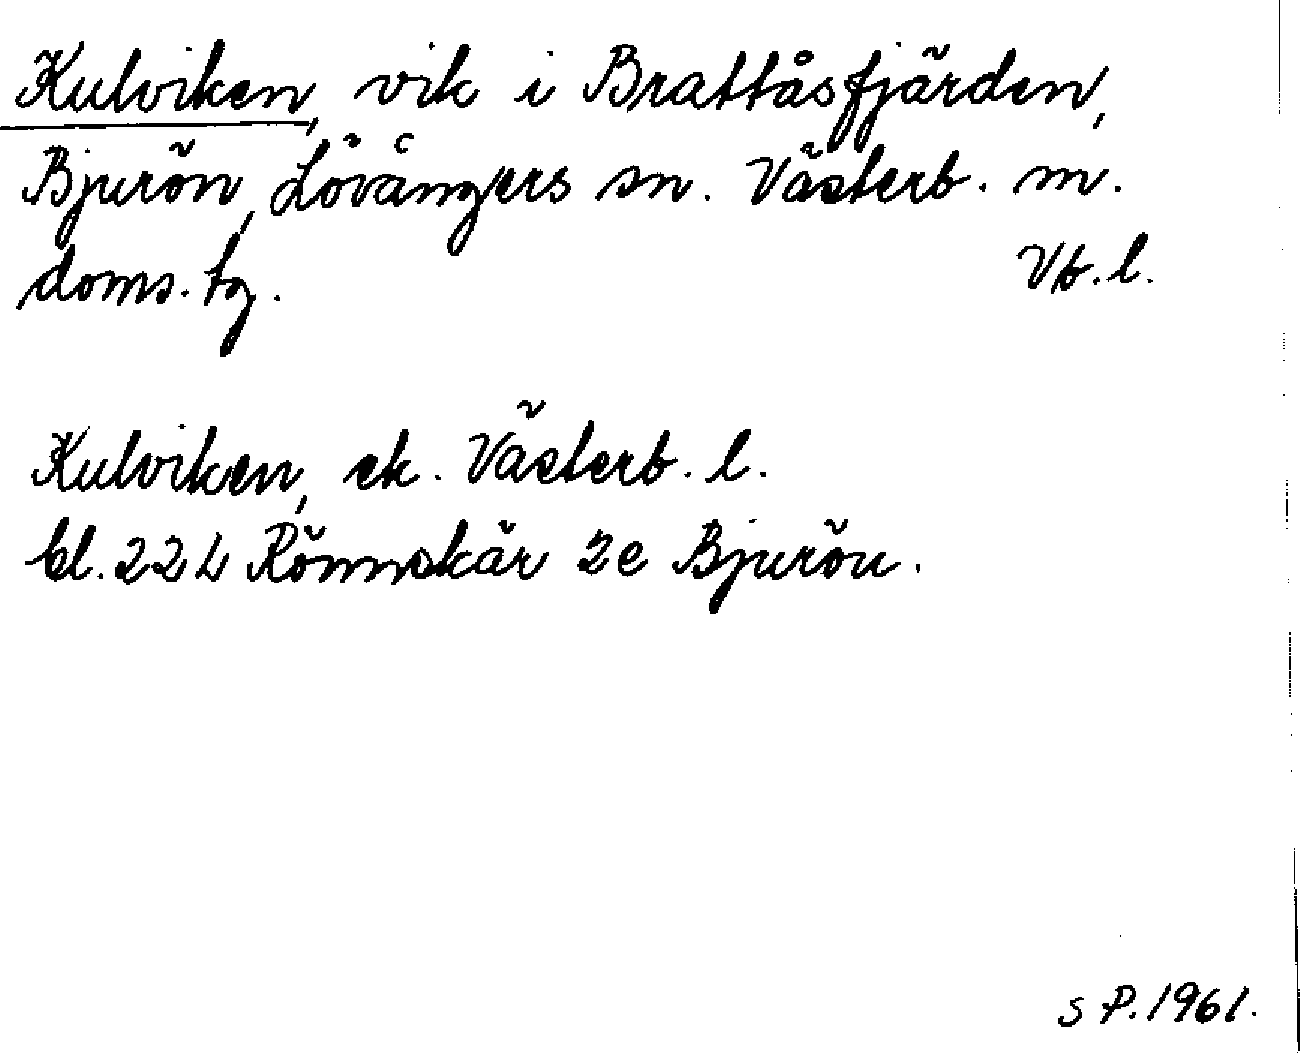 Kulviken, vik i Brattåsfjärden,
Bjurön, Lövångers sn. Västerb. m.
doms. tg. Vb. l.
Kulviken, ek. Västerb. l.
bl. 224 Rönnskär 2e Bjurön.
S P. 1961.